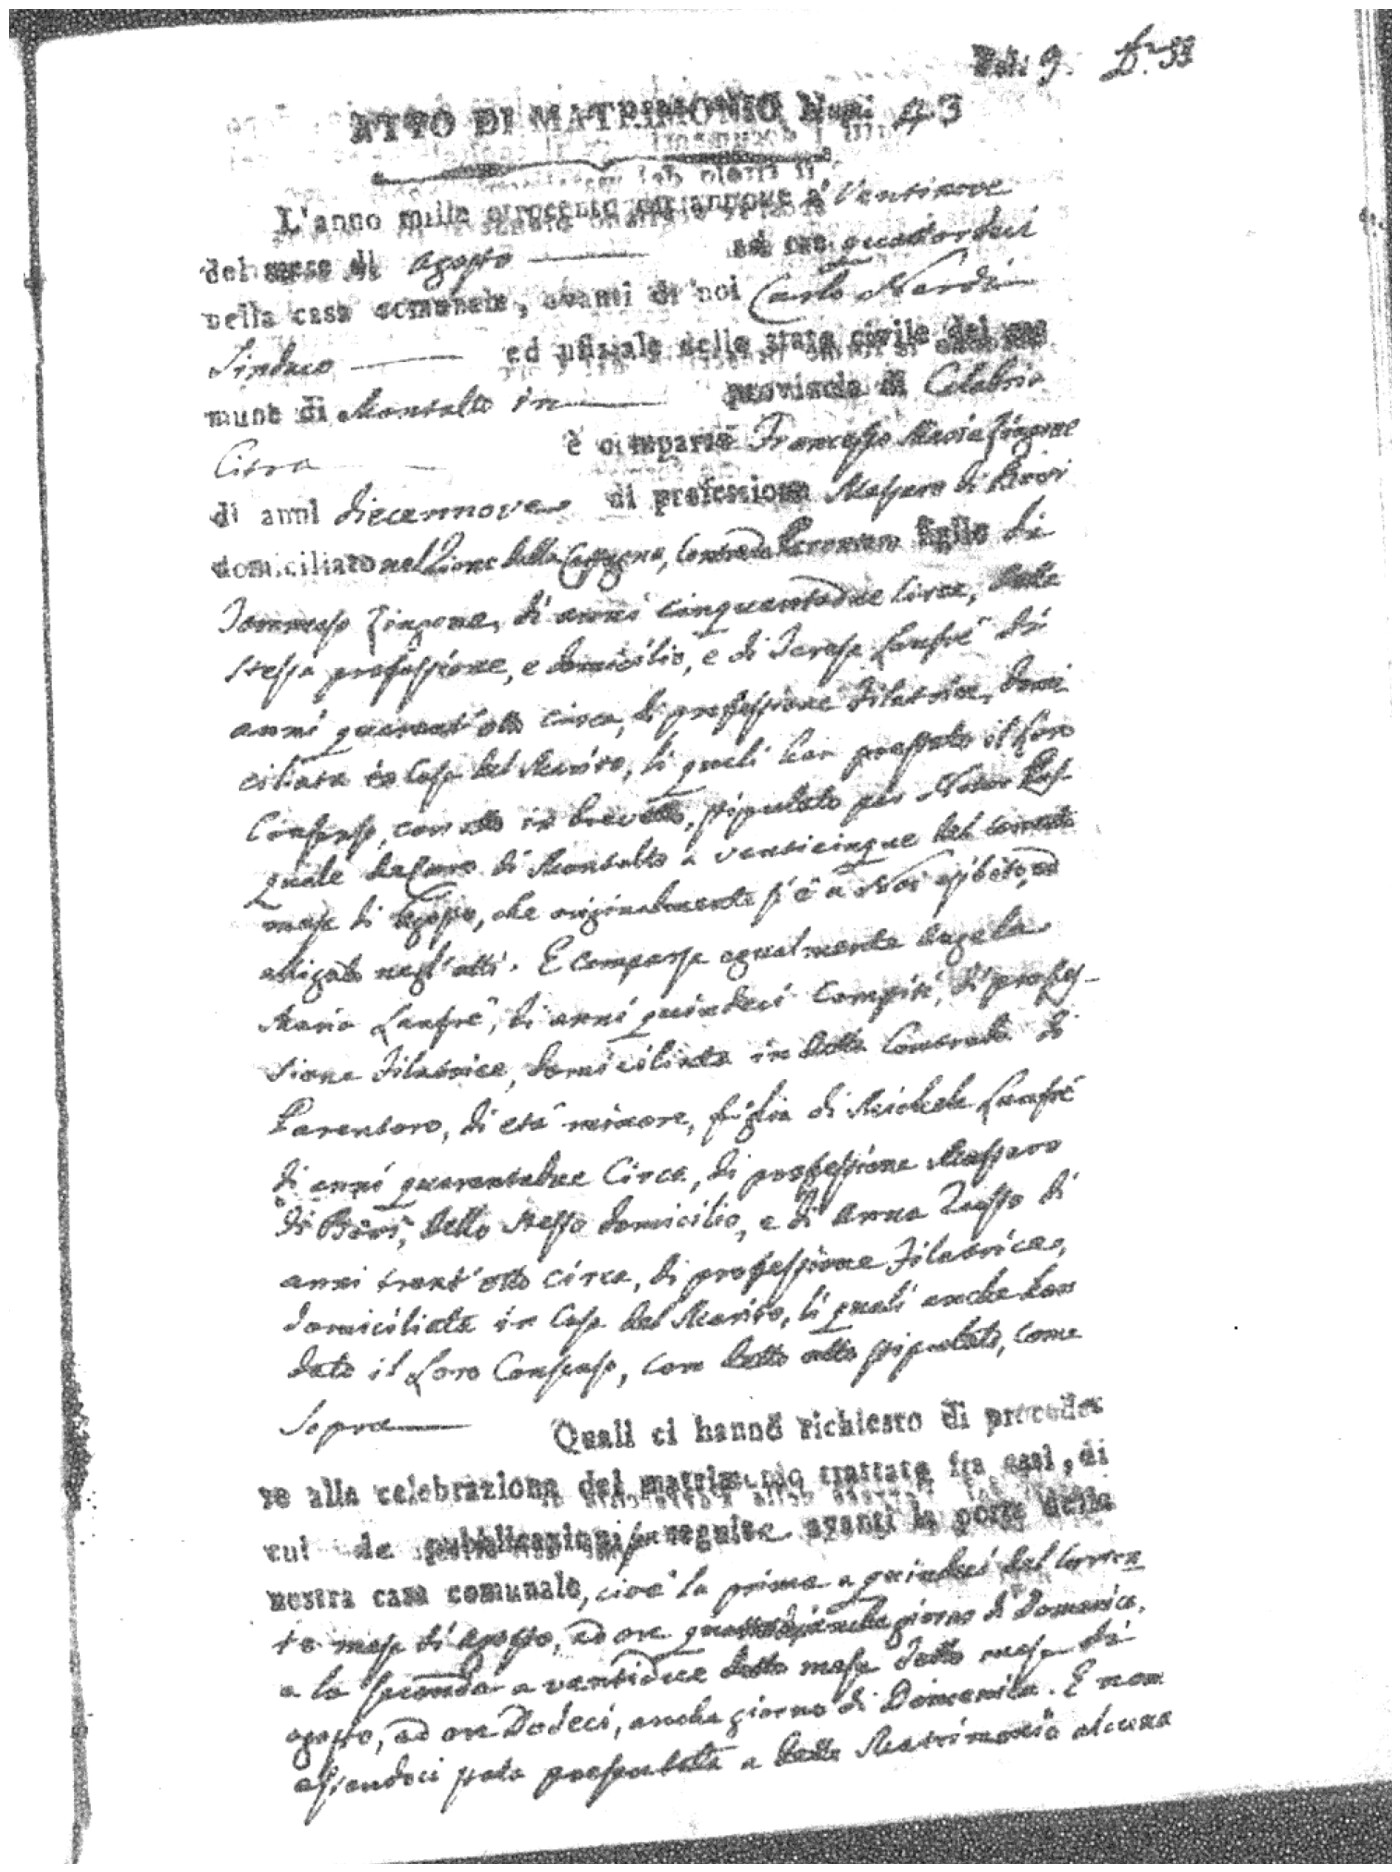 Fol. 9.
ATTO DI MATRIMONIO Num: 43
L'anno mille ottocento diciannove a' Ventinove
del mese di Agosto ad ore quattordici
nella casa comunale, avanti di noi Carlo Nardi
Sindaco ed ufiziale dello stato civile del co
mune di Montalto in provincia di Calabria
Citra è comparso Francesco Maria Zingone
di anni diecennove di professione Massaro di Bovi
domiciliato nel Rione della Campagna, Contrada figlio di
Tommaso Zingone, di anni cinquantadue circa, della
stessa professione, e domicilio, e di Teresa Lanfrè di
anni quarant'otto circa, di professione Filatrice, domi
ciliata in Casa del Marito, li quali han prestato il loro
Consenso, con atto in brevetto, stipulato per Notar Pas-
quale di Montalto a venticinque del corrente
mese di Agosto, che originalmente si è a Noi esibito, ed
alligato negl'atti. E comparsa egualmente Angela
Maria Lanfrè, di anni quindeci compiti, di profes-
sione Filatrice, domiciliata in detta Contrada di
Parantoro, di età minore, figlia di Michele Lanfrè
di anni quarantadue Circa, di professione Massaro
di Bovi, dello stesso domicilio, e di Anna Russo di
anni trent'otto circa, di professione Filatrice,
domiciliata in Casa del Marito, li quali anche han
dato il Loro Consenso, con detto atto stipulato, come
Sopra Quali ci hanno richiesto di procede
re alla celebrazione del matrimonio trattato fra essi, di
cui le pubblicazioni seguite avanti la porta della
nostra casa comunale, cioè la prima a quindeci del Corren
te mese di Agosto, ad ore giorno di Domenica,
e la seconda a ventidue detto mese detto mese di
agosto, ad ore Dodeci, anche giorno di Domenica. E non
essendoci stata presentata a detto Matrimonio alcuna